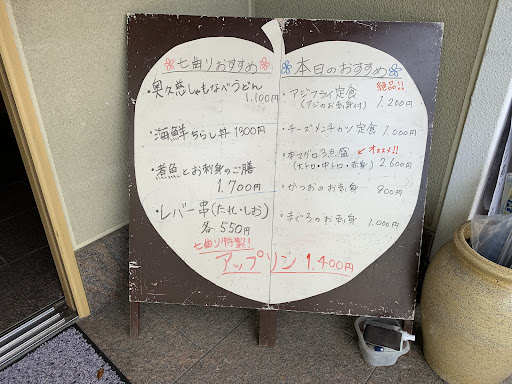 七曲りおすすめ
・奥久慈しゃもなべうどん
1.100円
・海鮮ちらし丼 1900円
・煮魚とお刺身のご膳
1.700円
・レバー串(たれ・しお)
各 550円
七曲り特製!!
アップリン 1.400円
本日のおすすめ
絶品!!
・アジフライ定食
(アジのお刺身付) 1.200円
・チーズメンチカツ定食 1.000円
・本マグロ3点盛 ← オススメ!!
(大トロ・中トロ・赤身) 2.600円
・かつおのお刺身 900円
・まぐろのお刺身 1.000円